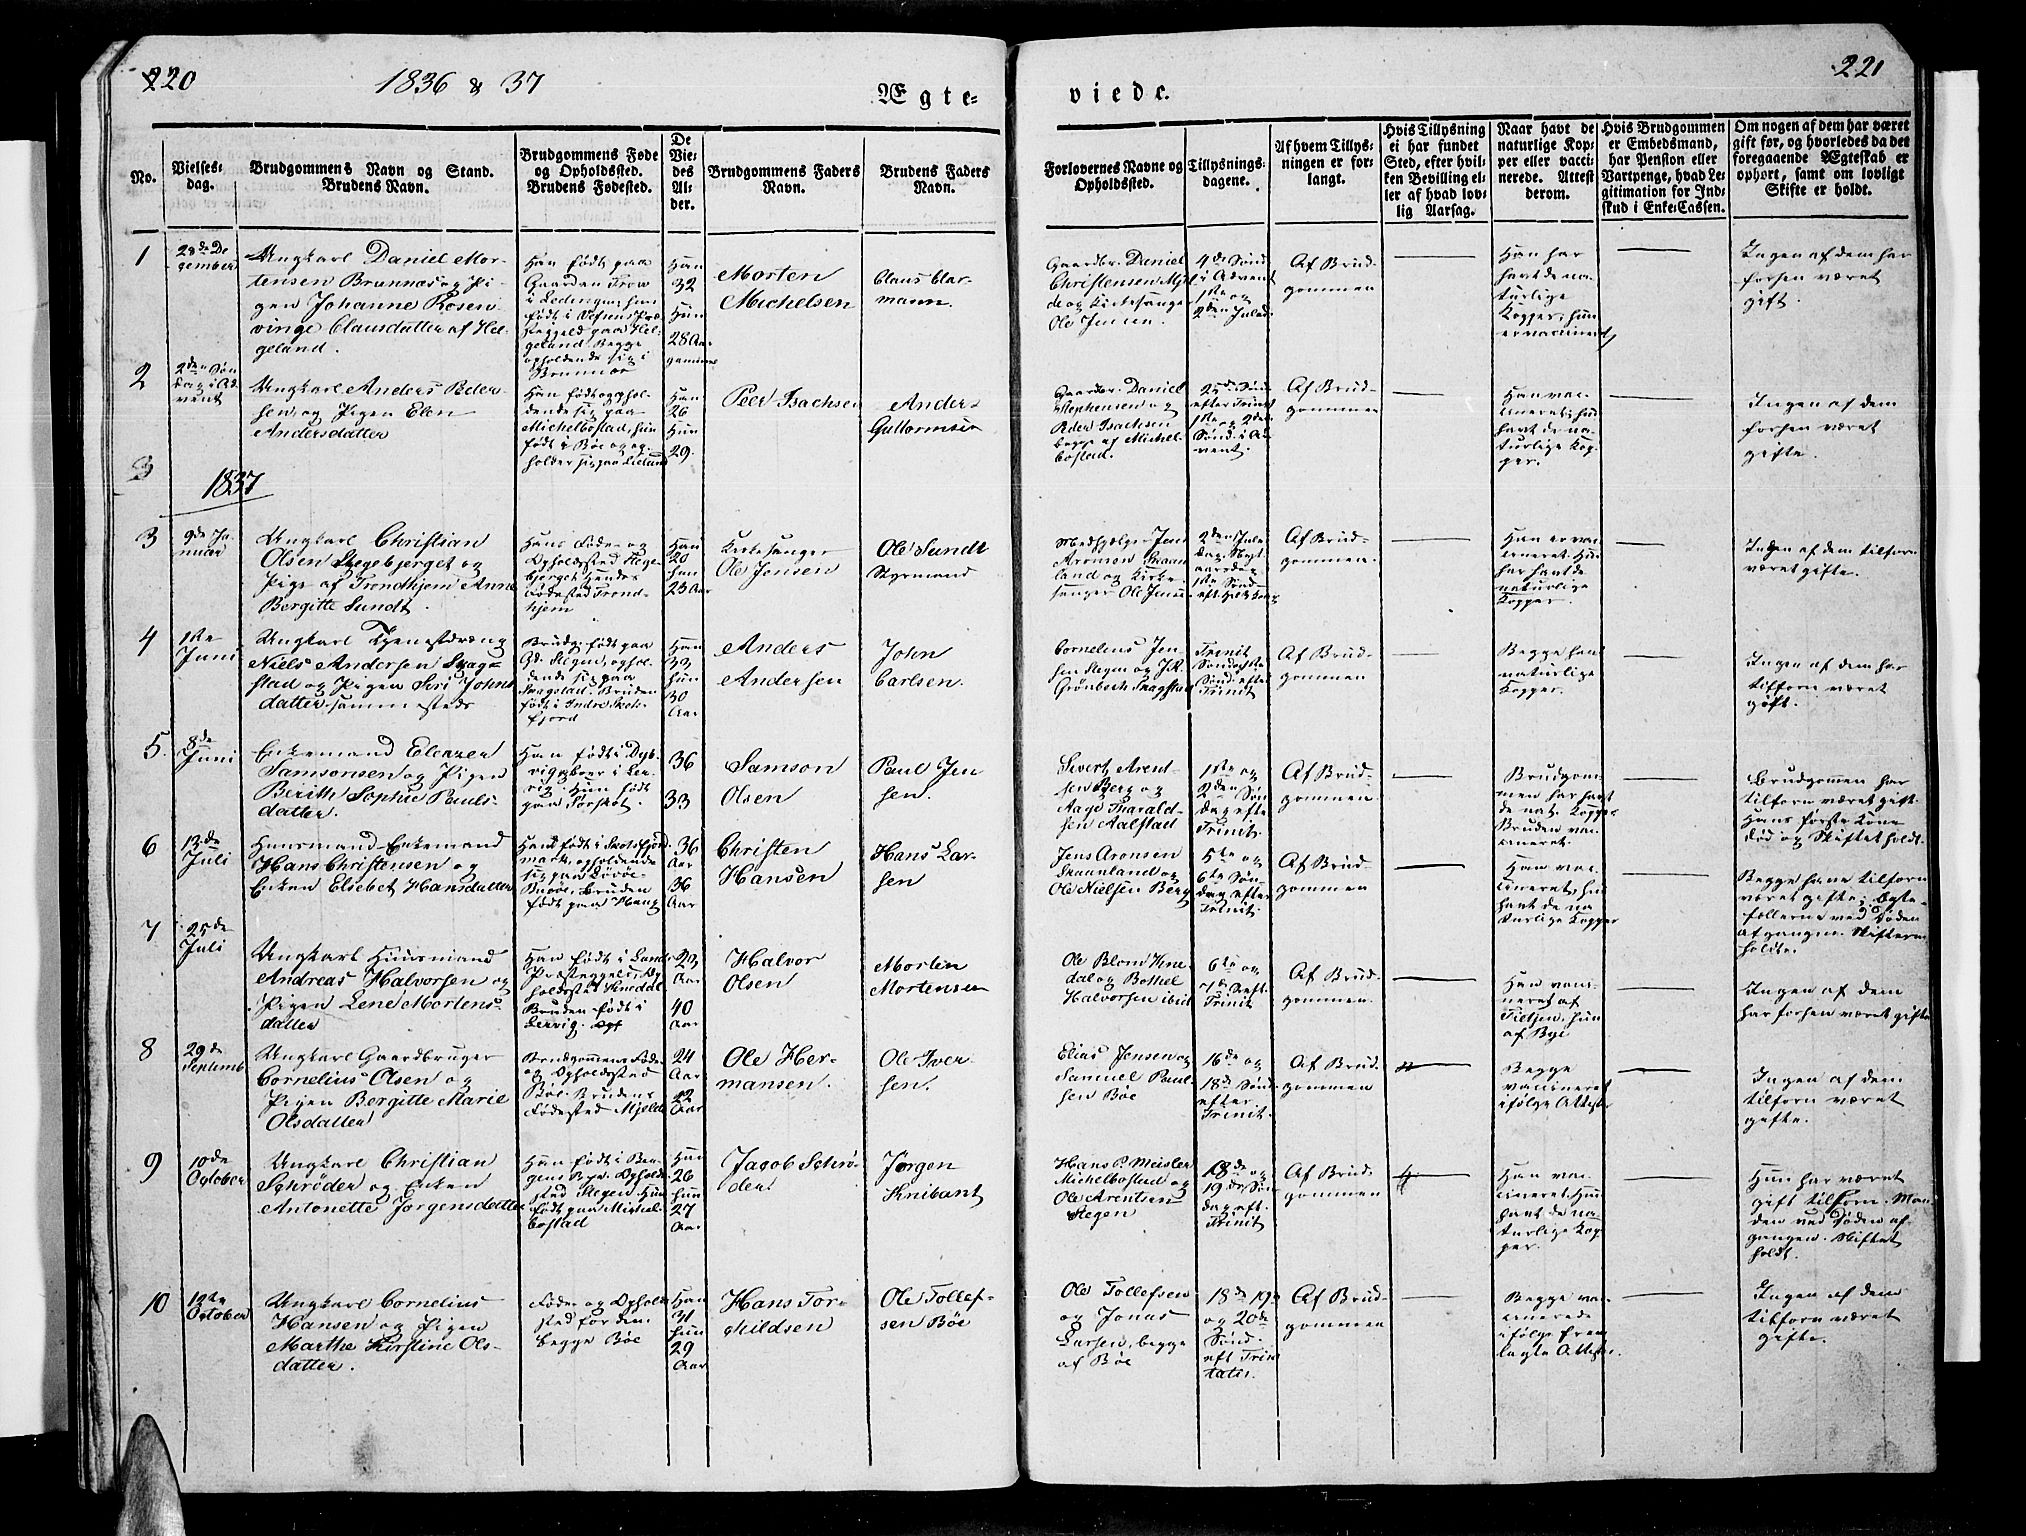 220
1836 & 37
Ægte-
viede.
221
No.
Vielses-
dag.
Brudgommens Navn og Stand.
Brudens Navn.
Brudgommens Føde
og Opholdssted.
Brudens Fødested.
De
Vie-
des
Al-
der.
Brudgommens Faders
Navn.
Brudens Faders
Navn.
Forlovernes Navne og
Opholdssted.
Tillysnings-
dagene.
Af hvem Tillys-
ningen er for-
langt.
Hvis Tillysning
ei har fundet
Sted, efter hvil-
ken Bevilling el-
ler af hvad lov-
lig Aarsag.
Naar havt de
naturlige Kop-
per eller vacci-
nerede. Attest
derom.
Hvis Brudgommen
er Embedsmand,
har Pension eller
Vartpenge, hvad Le-
gitimation for Ind-
skud i Enke-Cassen.
Om nogen af dem har været
gift før, og hvorledes da det
foregaaende Ægteskab er
ophørt, samt om lovligt
Skifte er holdt.
1
28de De
cember
Ungkarl Daniel Mor-
tensen Brunnæs og Pi-
gen Johanne Rosen-
vinge Clausdatter af Hel-
geland.
Han født paa
Gaarden
i Lødingen, hun
født i Vefsens Præ-
stegjeld paa Hel-
geland. Begge
opholdende sig i
Han
32
Hun
28 Aar
Morten
Michelsen
Claus Clar-
mann.
Gaardbr. Daniel
Christensen
og Kirkesanger
Ole Jensen.
4de Sønd
i Advent
1ste og
2den Juled.
Af Brud-
gommen
Han har
havt de na-
turlige
Kopper, hun
er vaccineret
Ingen af dem har
forhen været
gift.
2
2den Søn
dag i Ad
vent
Ungkarl Anders Peder-
sen og Pigen Elen
Andersdatter
Han født og ophol-
dende sig paa
Michelbostad, hun
født i Bøe og op-
holder sig paa
Han
26
Hun
29.
Peer Isachsen
Anders
Guttormsen
Gaardbr. Daniel
Stephensen og
Peder Isachsen
begge af Michel-
bostad.
25de Sønd
efter Trinit
1ste og 2den
Sønd. i Ad
vent.
Af Brud-
gommen
Han vac-
cineret, hun
havt de na-
turlige Kop-
per.
Ingen af dem
forhen været
gifte.
3
1837
3
9de Ja-
nuar
Ungkarl Christian
Olsen Hegebjerget og
Pige af Trondhjem Anne
Bergitte Sundt.
Hans Føde- og
Opholdssted Hege-
bjerget Hendes
Fødested Trond-
hjem
Han
20
Hun
23 Aar
Kirkesanger
Ole Jensen
Ole Sundt
Styrmand
Medhjelper Jens
Aronsen Skaan
land og Kirke-
sanger Ole Jensen
2den Jule
dag, Nyt-
aarsdag
1ste Sønd
Af Brud-
gommen.
Han er vac-
cineret. Hun
har havt de
naturlige
Kopper.
Ingen af dem tilforn
været gifte.
4
1ste
Juni
Ungkarl Tjenestdreng
Niels Andersen Skag-
stad og Pigen Siri Johns
datter sammesteds
Brudg. født paa
Gd. Stegen, ophol-
dende sig paa
Skagstad. Bruden
født i Indre Skots-
fjord
Han
33
Hun
30
Aar
Anders
Andersen
John
Carlsen.
Cornelius Jen
sen Stegen og J.R.
Grønbech Skagstad
Trinit
Sønd. efter
Trinit
Af Brud-
gommen
Begge havt
naturlige
Kopper.
Ingen af dem har
tilforn været
gift.
5
8de
Juni
Enkemand Eleazer
Samsonsen og Pigen
Berith Sophie Pauls-
datter.
Han født i Dyb-
vig, boer i Ler-
vig. Hun født
paa
36
33
Samson
Olsen
Paul Jen
sen.
Sivert Arent-
sen Berg og
Aage Harald-
sen Aalstad
1ste og
2den Søn
dag efter
Trinit.
Af Brud-
gommen.
Brudgom-
men har havt
de nat. Kopper
Bruden vac-
cineret.
Brudgommen har
tilforn været gift.
Hans første Kone
død og Skiftet holdt.
6
13de
Juli
Huusmand Enkemand
Hans Christensen og
Enken Elsebet Hansdatter
Han født i Skotsfjord
mark, opholdende
sig paa
Bruden
født paa
36
Aar
36
Aar
Christen
Hansen
Hans Lar-
sen
Jens Aronsen
Skaanland og
Ole Nielsen Berg
5te og
6te Søn
dag efter
Trinit.
Af Brud-
gommen
Han vac-
cineret, hun
havt de na
turlige Kopper
Begge have tilforn
været gifte; Egte-
fællerne ved Døden
afgangne. Skifterne
holdte.
7
25de
Juli
Ungkarl Huusmand
Andreas Halvorsen og
Pigen Lene Mortens-
datter
Han født i
Præstegjeld, Op-
holdssted
Bruden født i
Lervig.
23
Aar
40
Aar
Halvor
Olsen
Morten
Mortensen
Ole Blom
dal og Bottel
Halvorsen ibid
6te og
7de S. eft.
Trinit
Af Brud-
gommen.
Han vacci-
neret af
hun
af Bye
Ingen af dem
har forhen været gifte
8
29de
Septemb
Ungkarl Gaardbruger
Cornelius Olsen og
Pigen Bergitte Marie
Olsdatter
Brudgommens Føde-
og Opholdssted
Bøe. Brudens
Fødested Mjelde
24
Aar
22
Aar
Ole Her-
mansen.
Ole Iver-
sen.
Elias Jensen og
Samuel Paul-
sen Bøe
16de og
18de Sønd
efter
Trinit.
Af Brud-
gommen
Begge
vaccineret
ifølge Attester
Ingen af dem
tilforn været
gifte.
9
10de
October
Ungkarl Christian
Schrøder og Enken
Antonette Jørgensdatter
Han født i Ber-
gens Bye. Ophold-
sted Stegen. Hun
født paa Michel-
bostad
Han
26
Hun
27
Aar
Jacob Schrø-
der
Jørgen
Knibant
Hans P. Meisler
Michelbostad og
Ole Arentsen
Stegen
18de og
19de Søn
dag eft.
Trinit
Af Brud-
gommen
Han vac-
cineret. Hun
havt de na-
turlige Kop-
per.
Hun har været
gift tilforn. Man-
den ved Døden af-
gangen. Skiftet
holdt.
10
12te
October
Ungkarl Cornelius
Hansen og Pigen
Marthe Kirstine Ols-
datter.
Føde- og Ophold-
sted for dem
begge Bøe
Han
21
Hun
29
Aar
Hans Tor-
kildsen
Ole Tollef-
sen Bøe
Ole Tollefsen
og Jonas
Larsen, begge
af Bøe
18de 19de
og 20de
Sønd.
eft Trini
tatis.
Af Brud-
gommen
Begge vac-
cinerede
ifølge frem
lagte Attester.
Ingen af dem
tilforn været
gifte.